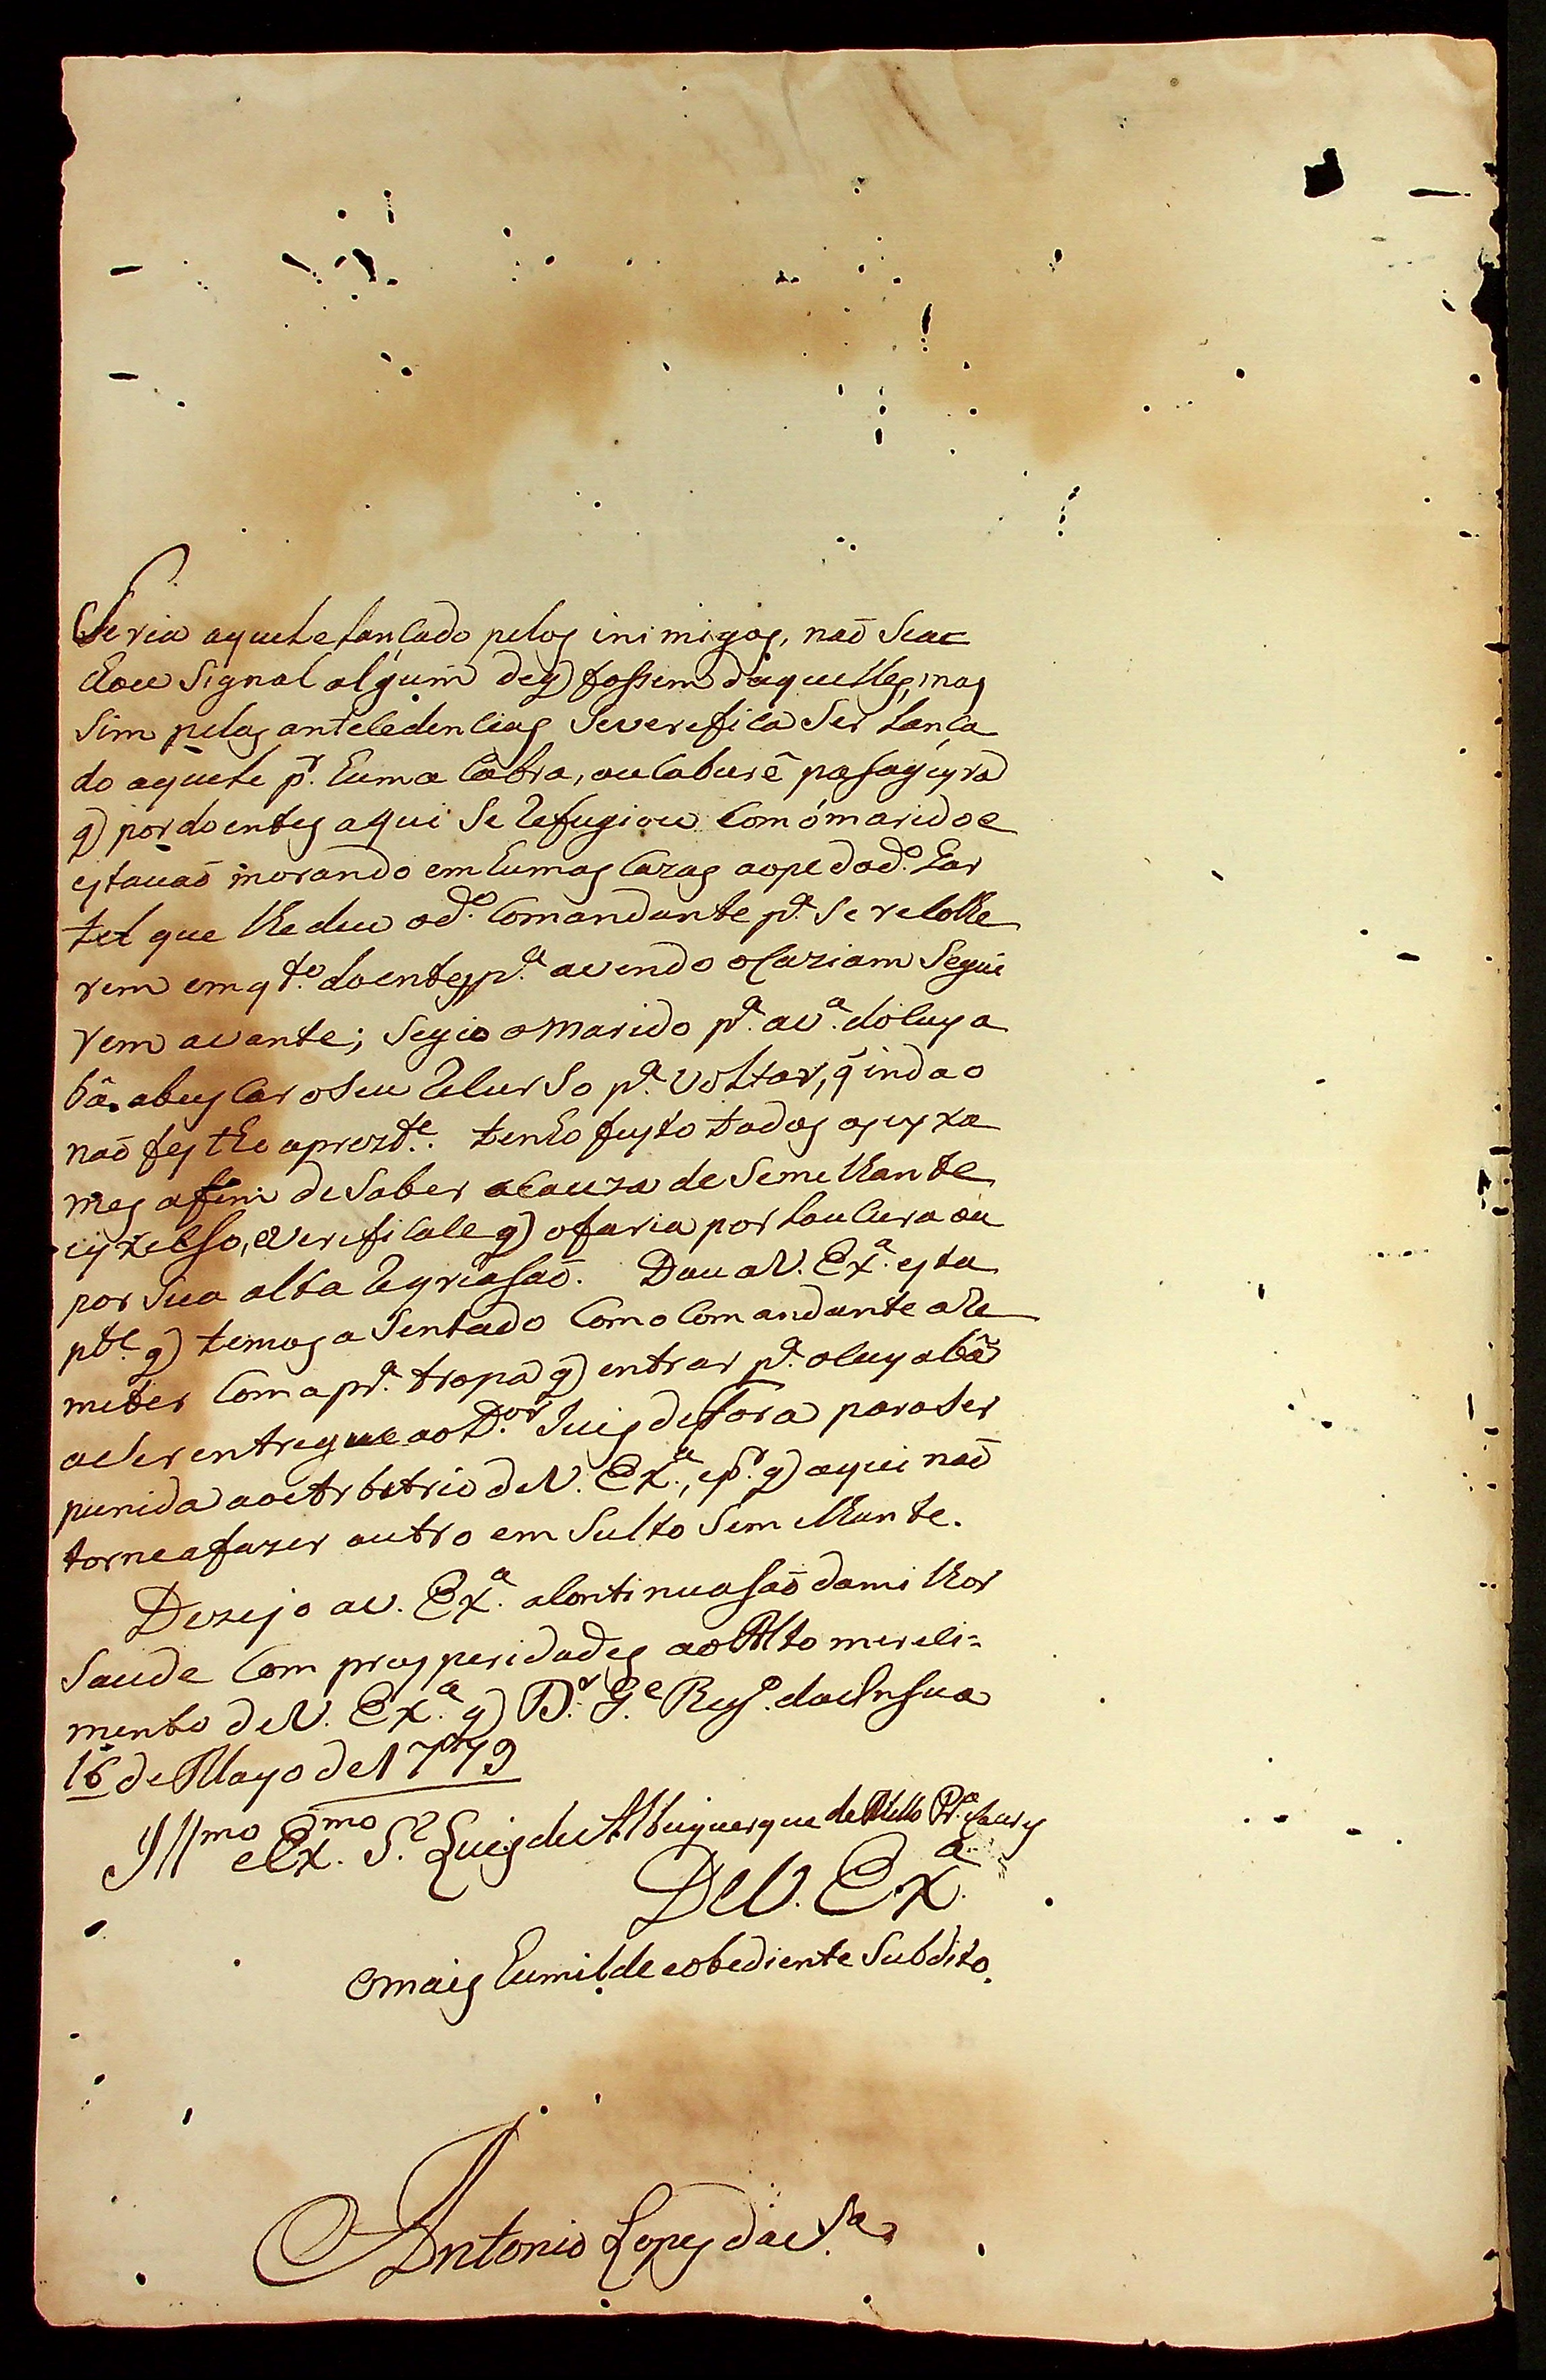 Seria aquele lançado pelos inimigos, naõ Seac
hou Signal algum deq̃ fossem daquelles, mas
Sim pelas antecedencias Severefica Ser Lança
do aquele pr. huma Cabra, ou Caburê pasageyra
q̃ pordoentes aqui Se Refugiou Com ómarido e
estauaõ morando em humas Cazas aope dod.º Coar
tel que lhe deu od.º Comandante p.ª Se recolhe
rem emq.to doentes, p.ª avendo ocaziam Segui
rem avante; Segio omarido p.ª av.ª doCuya
bâ. abuscar oSeu Recurso p.ª voltar, q̃ indao
naõ fes the aprezte. tenho feyto todos os eyxa
mes afim de Saber acauza de Semelhante
eyxcesso, everificase q̃ ofaria por Loucura ou
por Sua alta Reyriasaõ. Dou aV. Ex.ª esta
p.te q̃ temos aSentado Como Comandante aRe
meter Com apr.ª tropa q̃ entrar p.ª oCuyabâ
aSer entregue ao D.or Juis de Fora para Ser
punida ao Arbitrio de V. Ex.ª, ep.r q̃ aqui naõ
torne afazer outro em Sulto Semelhante.
Dezejo aV. Ex.ª aContinuasaõ da milhor
Saude Com prosperidades ao Alto mereci=
mento de V. Ex.ª q̃ D.s G.e Reg.º da Insua
16 de Mayo de 1779
Ill.mo e Ex.mo S.r Luis de Albuquerque de Mello Pr.ª Caceres
De V. Ex.ª
omais humilde eobediente Subdito.
Antonio Lopes da S.ª